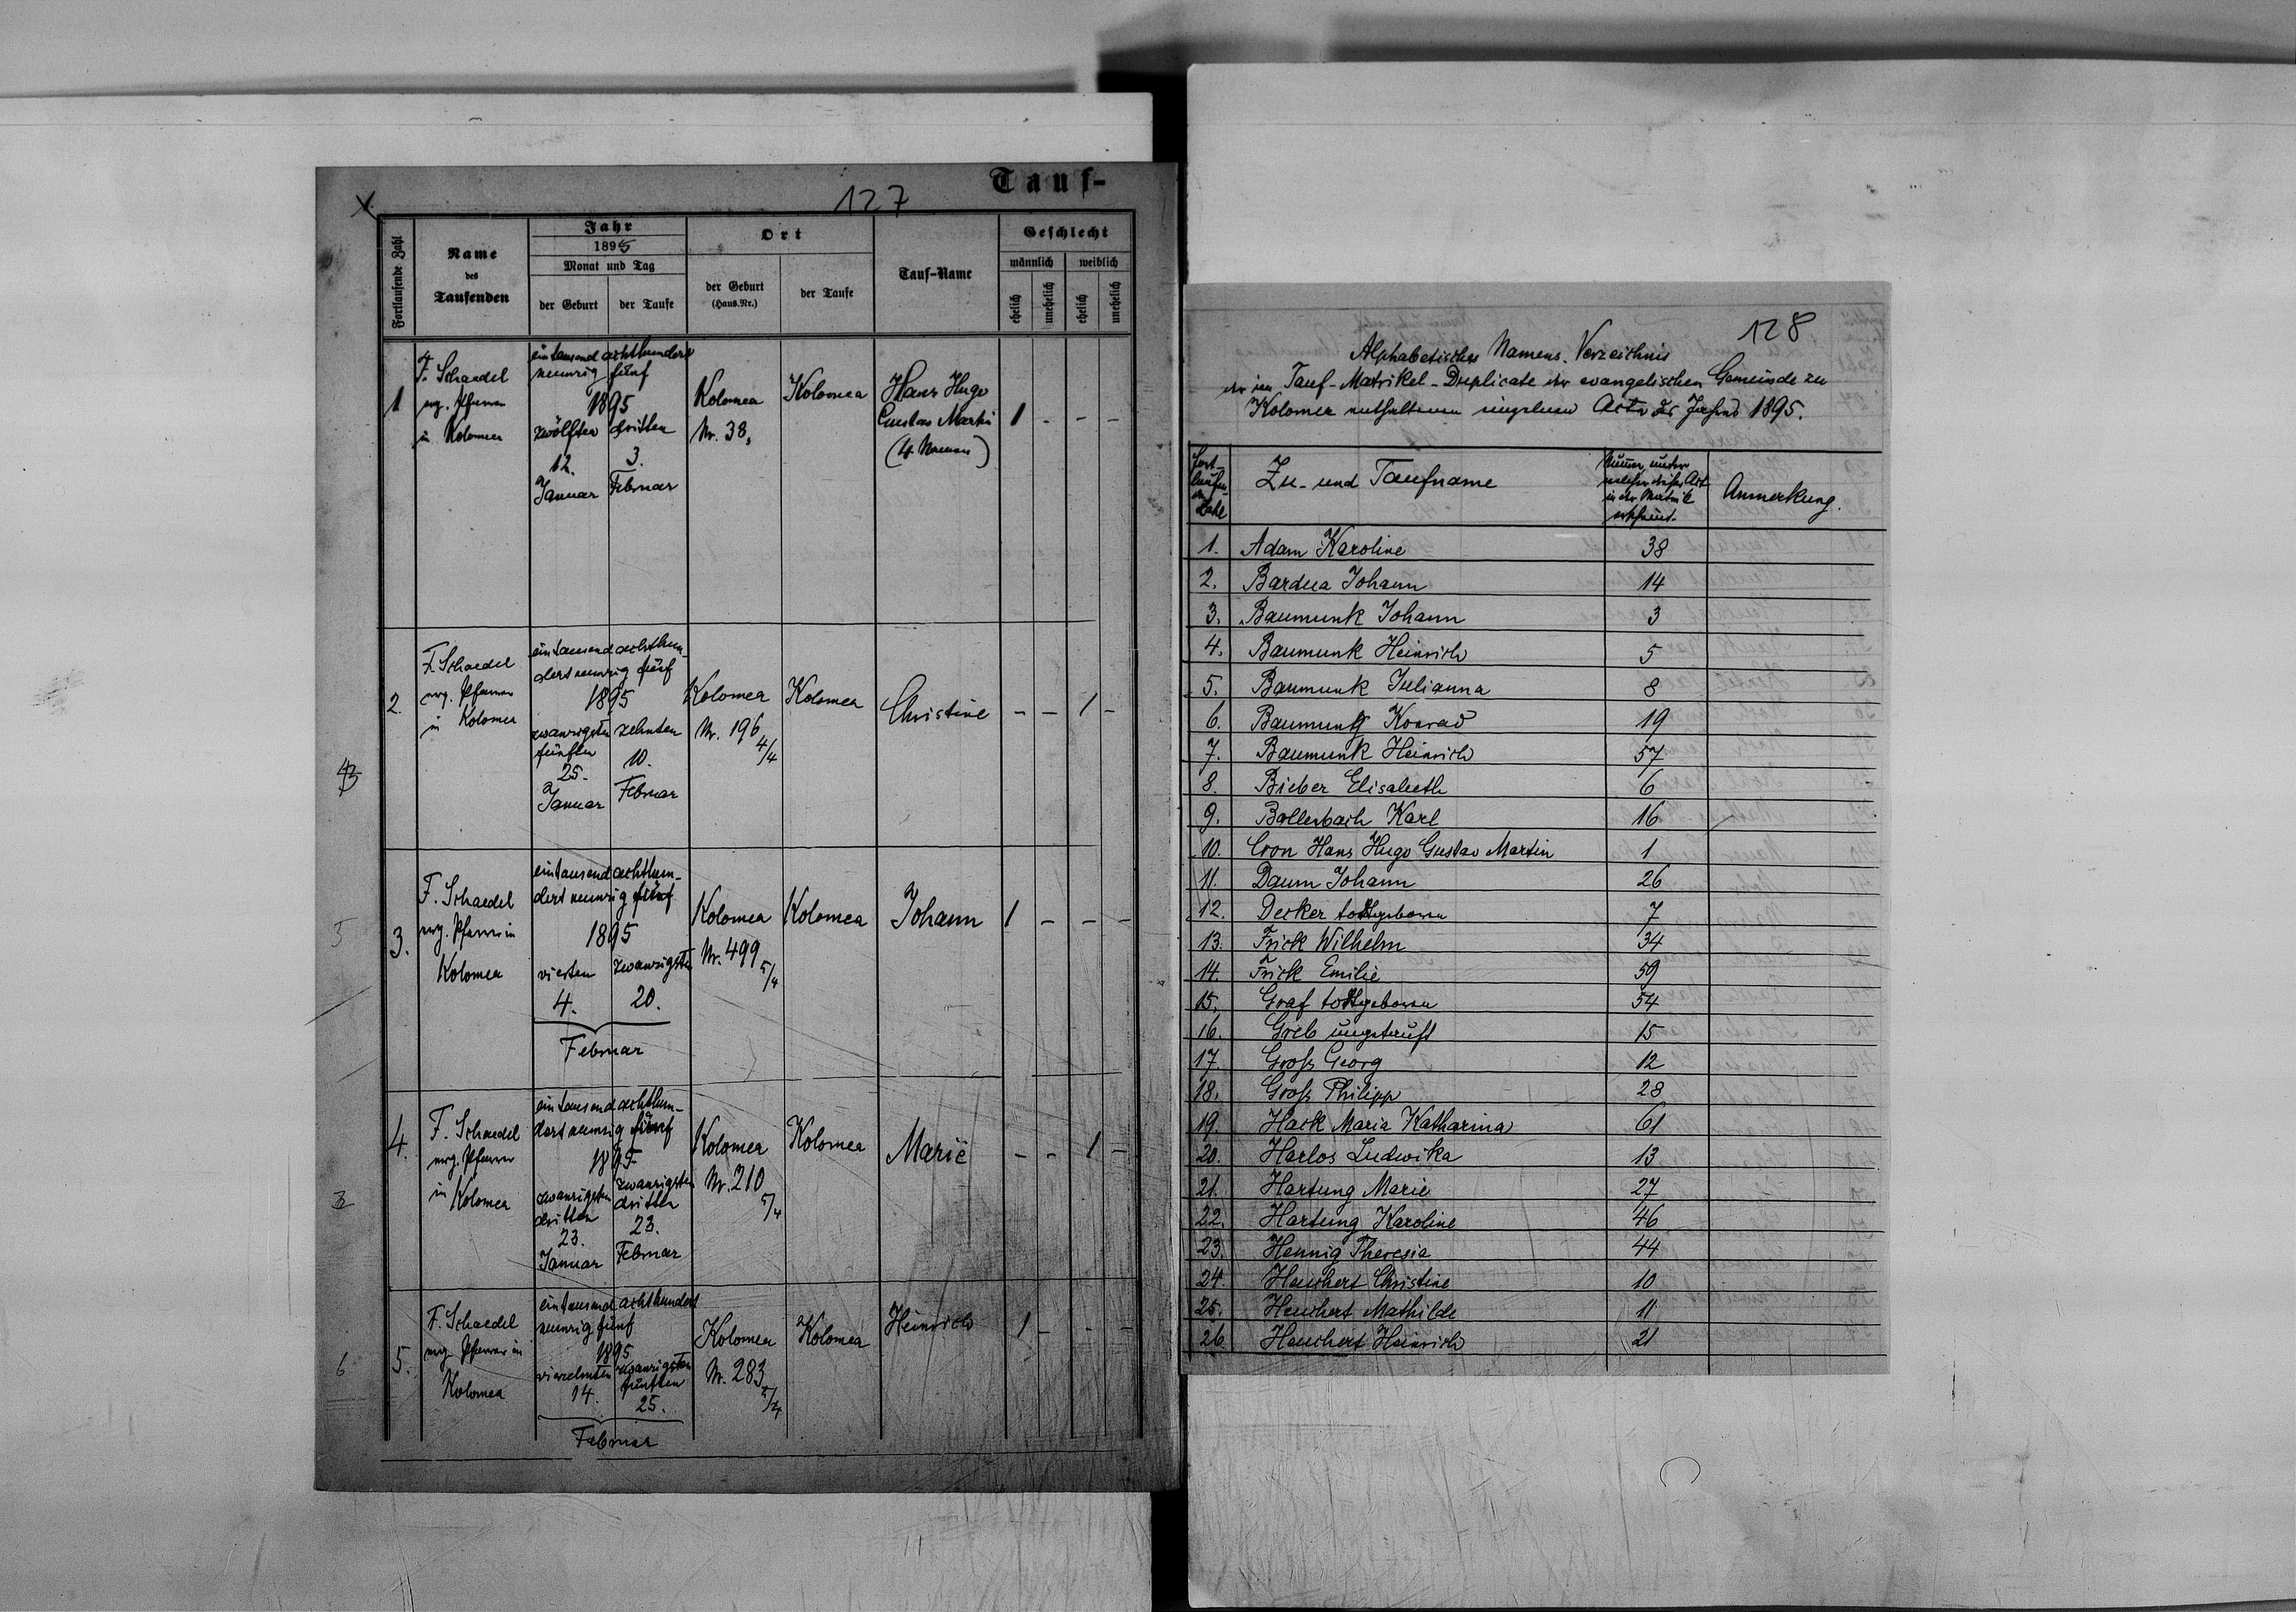 Tauf-
127
Fortlaufende Zahl
Name
des
Taufenden
Jahr
1895
Monat und Tag
der Geburt
der Taufe
Ort
der Geburt
(Haus.Nr.)
der Taufe
Tauf-Name
Geschlecht
männlich
weiblich
ehelich
unehelich
ehelich
unehelich
1
F. Schaedel
evg. Pfarrer
in Kolomea
eintausend achthundert
neunzig fünf
1895
zwölften dritten
12. 3.
Januar Februar
Kolomea
Nr. 38,
Kolomea
Hans Hugo
Gustav Martin
(4 Namen)
1 - - -
2.
F. Schaedel
evg. Pfarrer
in Kolomea
eintausend achthun-
dert neunzig fünf
1895
zwanzigsten zehnten
fünften
25. 10.
Januar Februar
Kolomea
Nr. 196
4/4
Kolomea
Christine
- - 1 -
3.
F. Schaedel
evg. Pfarrer in
Kolomea
eintausend achthun-
dert neunzig fünf
1895
vierten zwanzigsten
4. 20.
Februar
Kolomea
Nr. 499
5/4
Kolomea
Johann
1 - - -
5
4.
F. Schaedel
evg. Pfarrer
in Kolomea
eintausend achthun-
dert neunzig fünf
1895
zwanzigsten zwanzigsten
dritten dritten
23. 23.
Januar Februar
Kolomea
Nr. 210
5/4
Kolomea
Marie
- - 1 -
5.
F. Schaedel
evg. Pfarrer in
Kolomea
eintausend achthundert
neunzig fünf
1895
vierzehnten zwanzigsten
fünften
14. 25.
Februar
Kolomea
Nr. 283
5/4
Kolomea
Heinrich
1 - - -
6
128
Alphabetisches Namens-Verzeichnis
der im Tauf-Matrikel-Duplicate der evangelischen Gemeinde zu
Kolomea enthaltenen einzelnen Acte des Jahres 1895.
Fort-
laufen-
de
Zahl
Zu- und Taufname
Numer, unter
welcher dieser Act
in der Matrik
erscheint.
Anmerkung.
1. Adam Karoline 38
2. Bardua Johann 14
3. Baumunk Johann 3
4. Baumunk Heinrich 5
5. Baumunk Julianna 8
6. Baumunk Konrad 19
7. Baumunk Heinrich 57
8. Bieber Elisabeth 6
9. Bollenbach Karl 16
10. Cron Hans Hugo Gustav Martin 1
11. Daum Johann 26
12. Decker todtgeboren 7
13. Frick Wilhelm 34
14. Frick Emilie 59
15. Graf todtgeboren 54
16. Greb ungetauft 15
17. Groß Georg 12
18. Groß Philipp 28
19. Hack Maria Katharina 61
20. Harlos Ludwika 13
21. Hartung Marie 27
22. Hartung Karoline 46
23. Hennig Theresia 44
24. Heuchert Christine 10
25. Heuchert Mathilde 11
26. Heuchert Heinrich 21